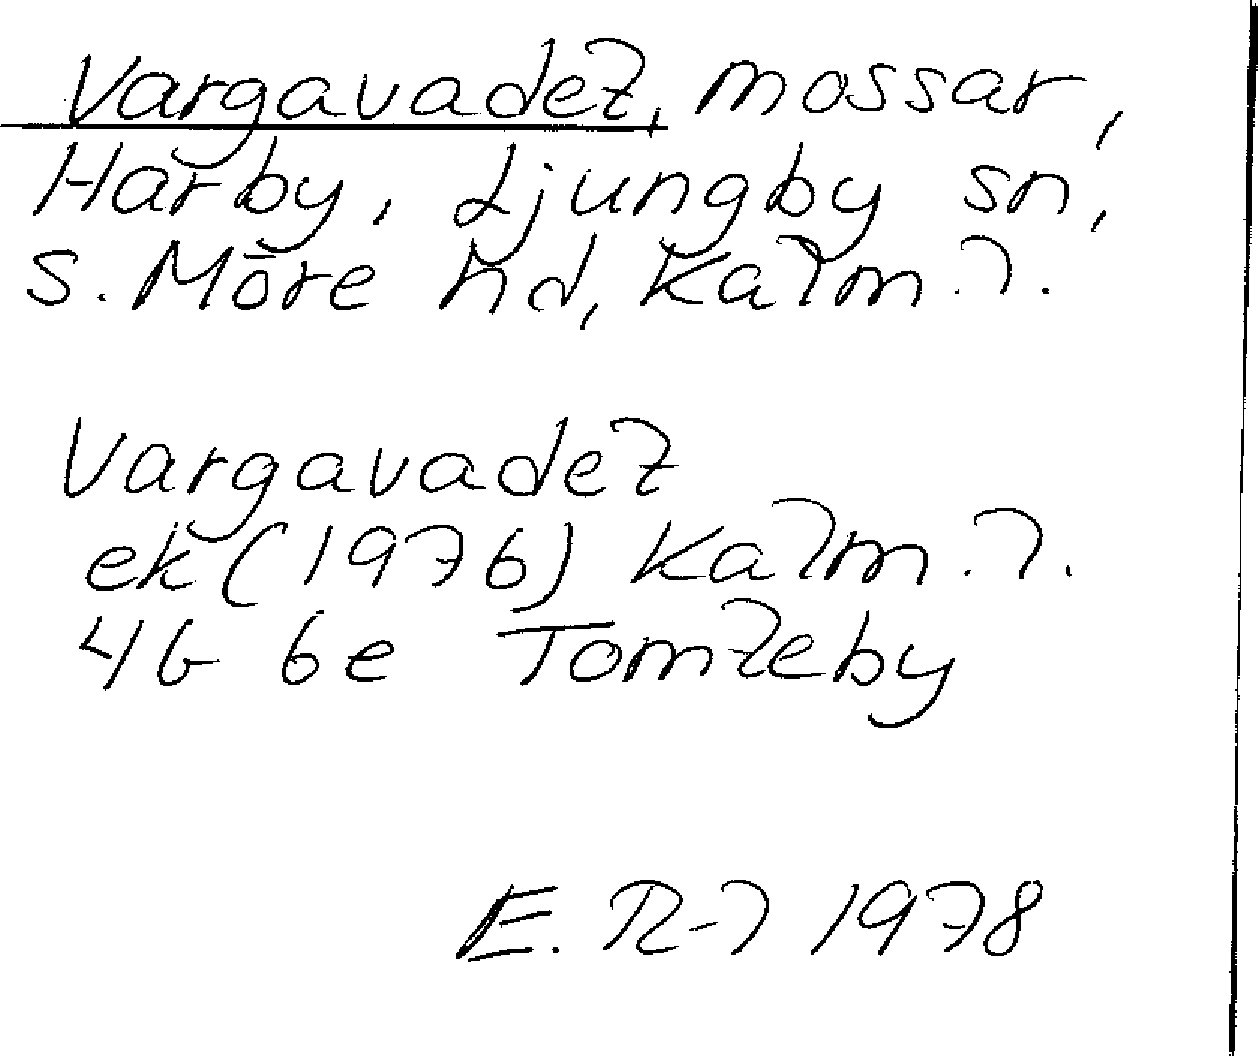 Vargavadet, mossar,
Harby, Ljungby sn,
S. Möre hd, Kalm. l.
Vargavadet
ek (1976) Kalm. l.
4G 6e Tomteby
E. R-l 1978